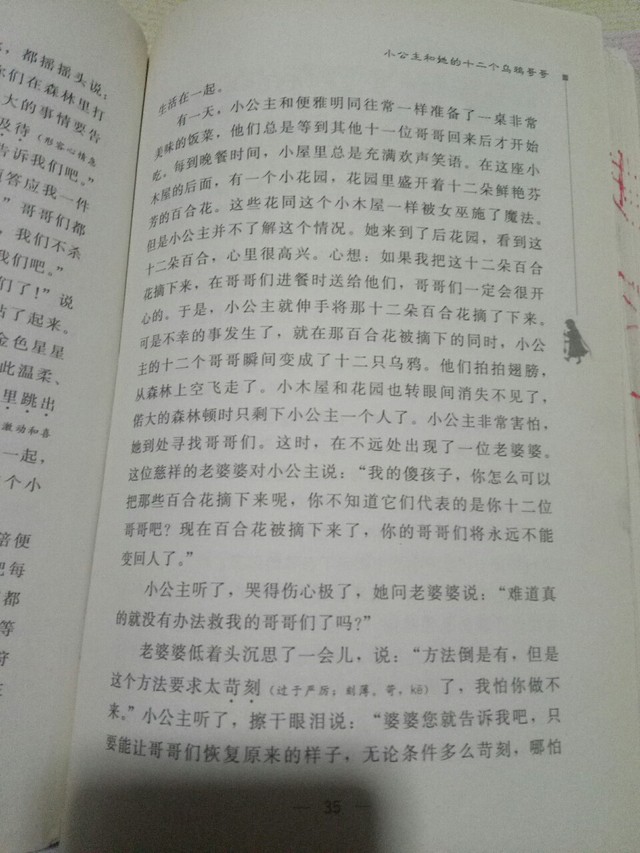 ，都摇摇头说：
你们在森林里打
大的事情要告
及待（形容心情急
告诉我们吧。”
须答应我一件
”哥哥们都
，我们不杀
我们吧。”
们了！”说
站了起来。
金色星星
此温柔、
里跳出
激动和喜
一起，
个小
陪便
把每
都
等
符
在
小公主和她的十二个乌鸦哥哥
生活在一起。
有一天，小公主和便雅明同往常一样准备了一桌非常
美味的饭菜，他们总是等到其他十一位哥哥回来后才开始
吃。每到晚餐时间，小屋里总是充满欢声笑语。在这座小
木屋的后面，有一个小花园，花园里盛开着十二朵鲜艳芬
芳的百合花。这些花同这个小木屋一样被女巫施了魔法。
但是小公主并不了解这个情况。她来到了后花园，看到这
十二朵百合，心里很高兴。心想：如果我把这十二朵百合
花摘下来，在哥哥们进餐时送给他们，哥哥们一定会很开
心的。于是，小公主就伸手将那十二朵百合花摘了下来。
可是不幸的事发生了，就在那百合花被摘下的同时，小公
主的十二个哥哥瞬间变成了十二只乌鸦。他们拍拍翅膀，
从森林上空飞走了。小木屋和花园也转眼间消失不见了，
偌大的森林顿时只剩下小公主一个人了。小公主非常害怕，
她到处寻找哥哥们。这时，在不远处出现了一位老婆婆。
这位慈祥的老婆婆对小公主说：“我的傻孩子，你怎么可以
把那些百合花摘下来呢，你不知道它们代表的是你十二位
哥哥吧？现在百合花被摘下来了，你的哥哥们将永远不能
变回人了。”
小公主听了，哭得伤心极了，她问老婆婆说：“难道真
的就没有办法救我的哥哥们了吗？”
老婆婆低着头沉思了一会儿，说：“方法倒是有，但是
这个方法要求太苛刻（过于严厉；刻薄。苛，kē）了，我怕你做不
来。”小公主听了，擦干眼泪说：“婆婆您就告诉我吧，只
要能让哥哥们恢复原来的样子，无论条件多么苛刻，哪怕
35